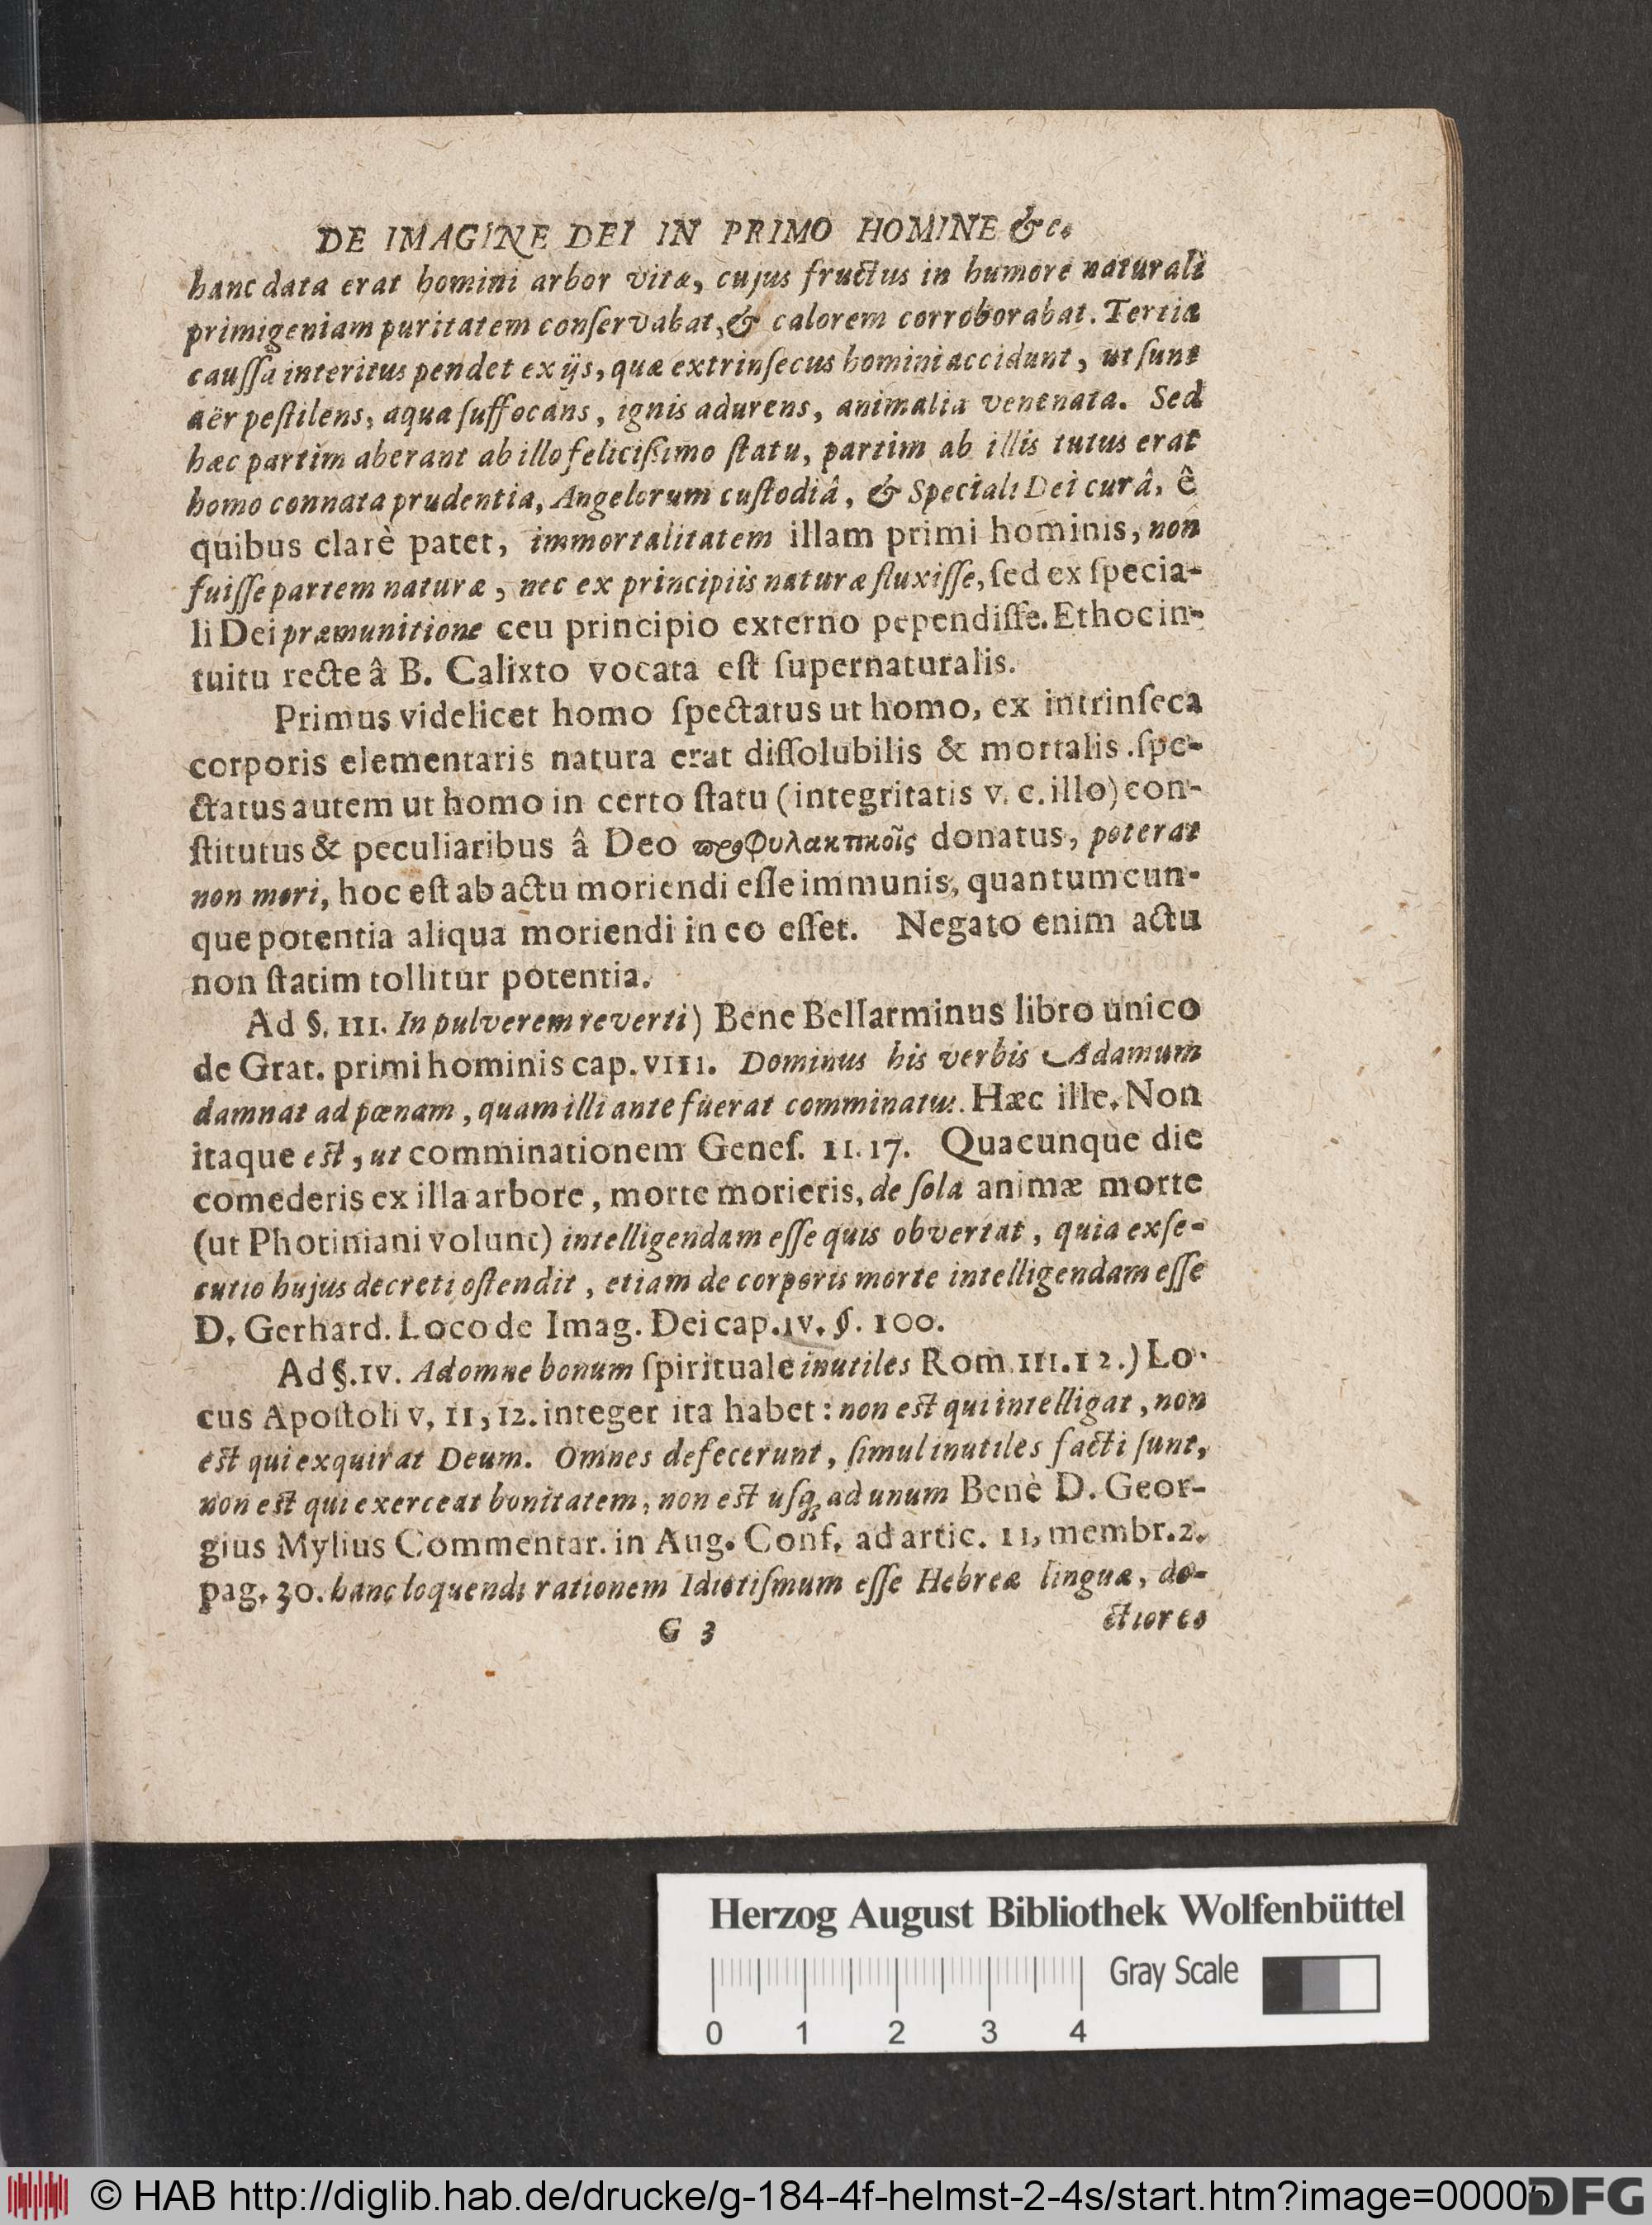 DE IMAGINE DEI IN PRIMO HOMINE &c.
hanc data erat homini arbor vitæ, cujus fructus in humore naturali
primigeniam puritatem conſervabat, & calorem corroborabat. Tertia
cauſſa interitus pendet ex ijs, quæ extrinſecus homini accidunt, ut ſunt
aër peſtilens, aqua ſuffocans, ignis adurens, animalia venenata. Sed
hæc partim aberant ab illo feliciſsimo ſtatu, partim ab illis tutus erat
homo connata prudentia, Angelorum cuſtodiâ, & Speciali Dei curâ, ê
quibus clarè patet, immortalitatem illam primi hominis, non
fuiſſe partem naturæ, nec ex principiis naturæ fluxiſſe, ſed ex ſpecia-
li Dei præmunitione ceu principio externo pependiſſe. Et hoc in-
tuitu recte â B. Calixto vocata eſt ſupernaturalis.
Primus videlicet homo ſpectatus ut homo, ex intrinſeca
corporis elementaris natura erat diſſolubilis & mortalis. ſpe-
ctatus autem ut homo in certo ſtatu (integritatis v. c. illo) con-
ſtitutus & peculiaribus â Deo προφυλακτικοῖς donatus, poterat
non mori, hoc eſt ab actu moriendi eſſe immunis, quantumcun-
que potentia aliqua moriendi in eo eſſet. Negato enim actu
non ſtatim tollitur potentia.
Ad §. III. In pulverem reverti) Bene Bellarminus libro unico
de Grat. primi hominis cap. VIII. Dominus his verbis Adamum
damnat ad pœnam, quam illi ante fuerat comminatus. Hæc ille. Non
itaque eſt, ut comminationem Geneſ. II. 17. Quacunque die
comederis ex illa arbore, morte morieris, de ſola animæ morte
(ut Photiniani volunt) intelligendam eſſe quis obvertat, quia exſe-
cutio hujus decreti oſtendit, etiam de corporis morte intelligendam eſſe
D. Gerhard. Loco de Imag. Dei cap. IV. §. 100.
Ad §. IV. Ad omne bonum ſpirituale inutiles Rom. III. 12.) Lo-
cus Apoſtoli v, 11, 12. integer ita habet: non eſt qui intelligat, non
eſt qui exquirat Deum. Omnes defecerunt, ſimul inutiles facti ſunt,
non eſt qui exerceat bonitatem, non eſt uſq; ad unum Benè D. Geor-
gius Mylius Commentar. in Aug. Conf. ad artic. 11, membr. 2.
pag. 30. hanc loquendi rationem Idiotiſmum eſſe Hebreæ linguæ, do-
G 3
ctiores
Herzog August Bibliothek Wolfenbüttel
Gray Scale
0 1 2 3 4
© HAB http://diglib.hab.de/drucke/g-184-4f-helmst-2-4s/start.htm?image=00005
DFG